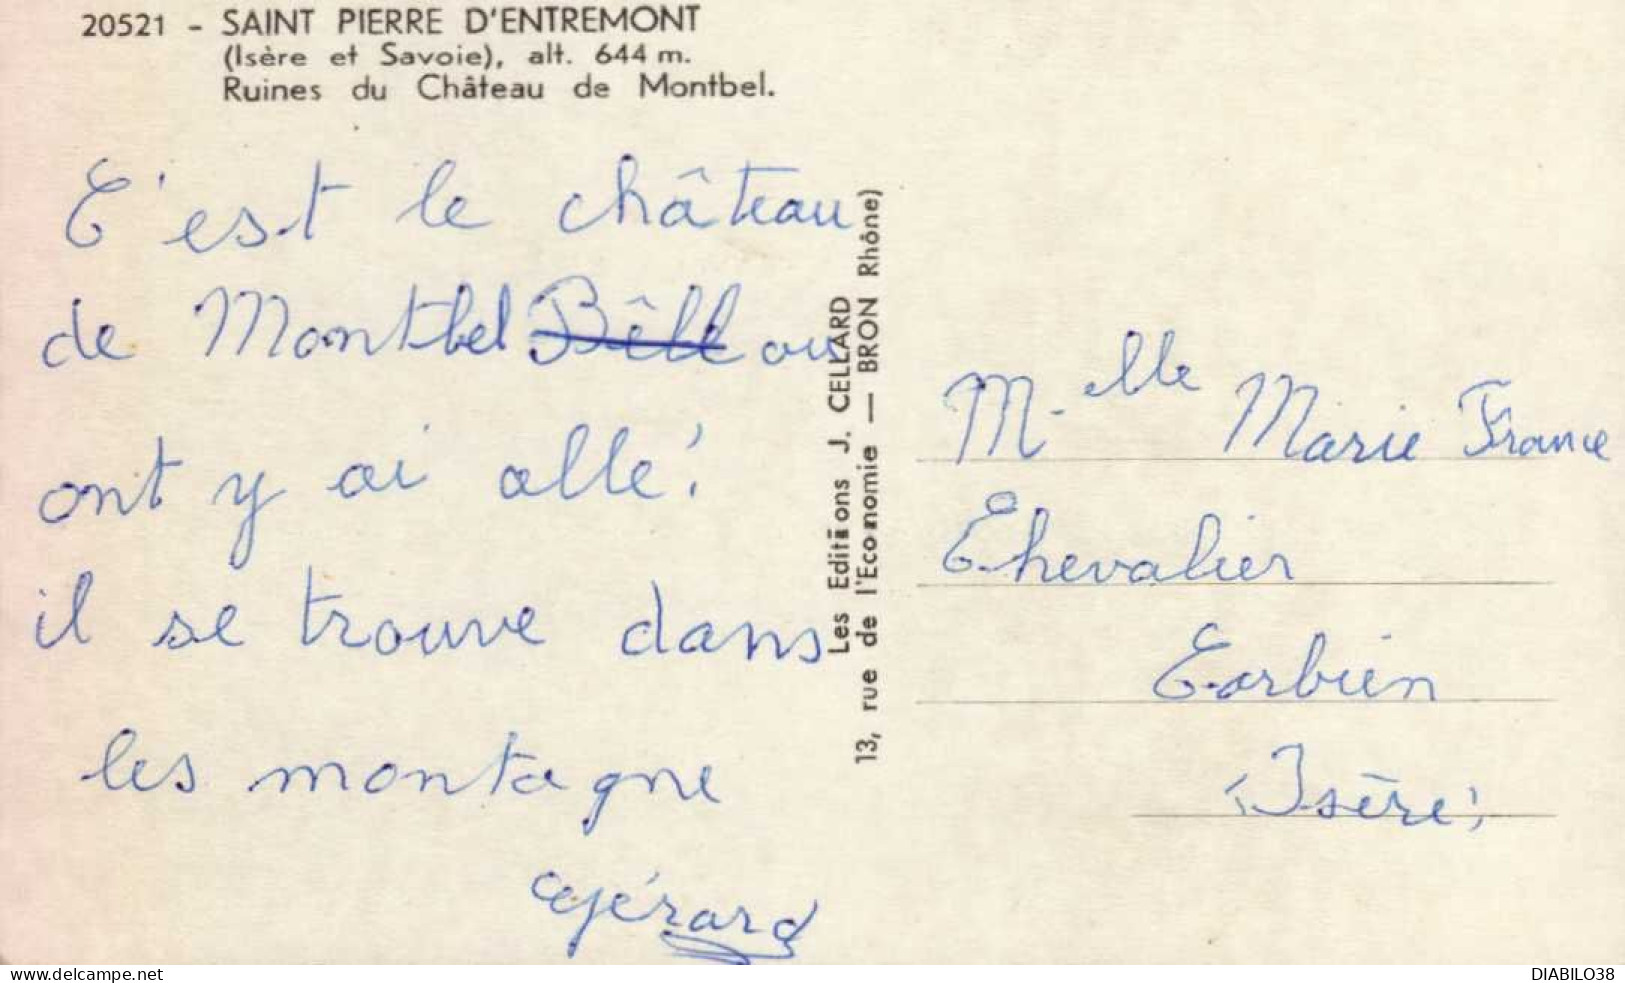 20521 - SAINT PIERRE D'ENTREMONT
(Isère et Savoie), alt. 644 m.
Ruines du Château de Montbel.
C'est le château
de Montbel Bêll ou
ont y ai allé!
il se trouve dans
les montagne
Gérard
Les Editions J. CELLARD
13, rue de l'Economie — BRON Rhône)
M.elle Marie France
Chevalier
Corbien
(Isère)
DIABILO38